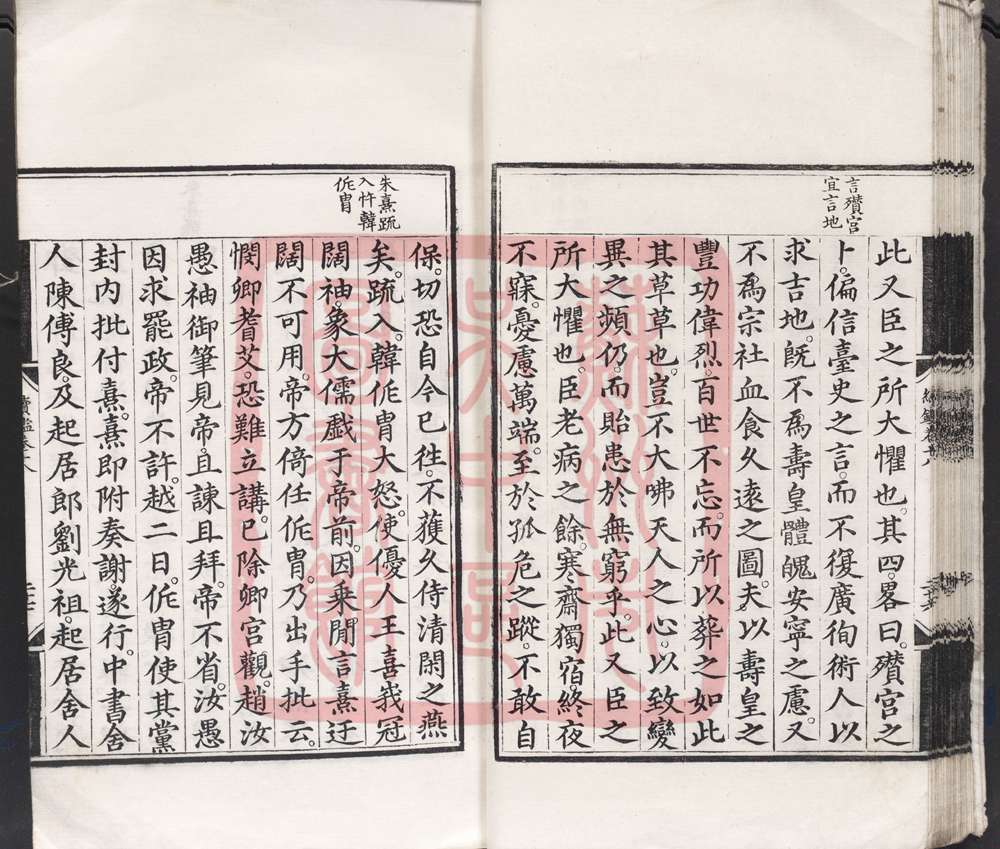 言殯宮
宜言地
此又臣之所大懼也。其四畧曰。殯宮之
卜。偏信臺史之言。而不復廣徇術人以
求吉地。旣不爲壽皇體魄安寧之慮。又
不爲宗社血食久遠之圖。夫以壽皇之
豐功偉烈。百世不忘。而所以葬之如此
其草草也。豈不大咈天人之心。以致變
異之頻仍。而貽患於無窮乎。此又臣之
所大懼也。臣老病之餘。寒齋獨宿。終夜
不寐。憂慮萬端。至於孤危之蹤。不敢自
朱熹疏
入忤韓
侂胄
保。切恐自今已徃。不獲久侍清閑之燕
矣。疏入。韓侂胄大怒。使優人王喜峩冠
闊袖。象大儒戲于帝前。因乗閒言熹迂
闊不可用。帝方倚任侂胄。乃出手批云。
憫卿耆艾。恐難立講。已除卿宮觀。趙汝
愚袖御筆見帝。且諫且拜。帝不省。汝愚
因求罷政。帝不許。越二日。侂胄使其黨
封内批付熹。熹即附奏謝。遂行。中書舍
人陳傅良。及起居郎劉光祖。起居舍人